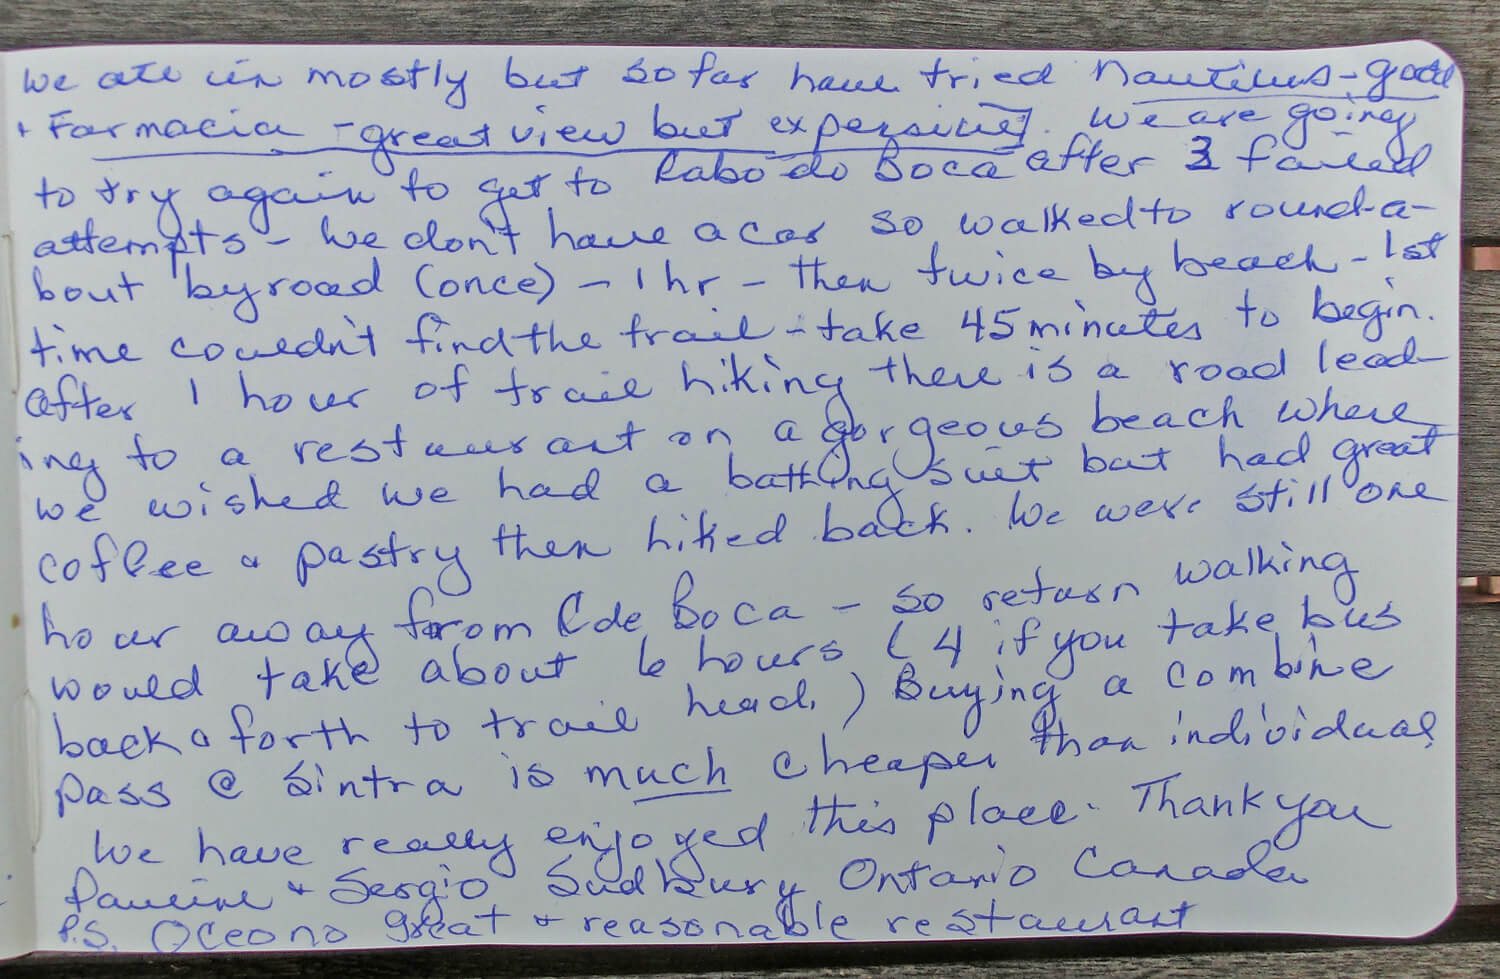 We ate in mostly but so far have tried Nautilus - good
+ Farmacia - great view but expensive]. We are going
to try again to get to Cabo do Boca after 3 failed
attempts - We don't have a car so walked to round-a-
bout by road (once) - 1 hr - then twice by beach - 1st
time couldn't find the trail - take 45 minutes to begin.
After 1 hour of trail hiking there is a road lead-
ing to a restaurant on a gorgeous beach where
we wished we had a bathing suit but had great
coffee & pastry then hiked back. We were still one
hour away from C de Boca - so return walking
would take about 6 hours (4 if you take bus
back & forth to trail head.) Buying a combine
pass @ Sintra is much cheaper than individual
We have really enjoyed this place. Thank you
Pauline + Sergio Sudbury Ontario Canada
P.S. Oceono great + reasonable restaurant